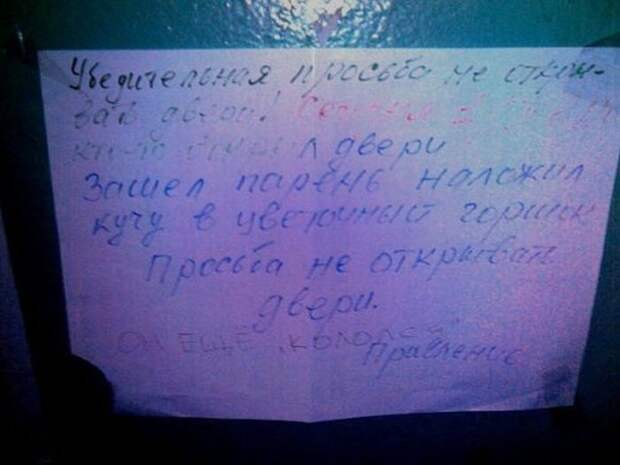 Убедительная просьба не откры-
вать двери!
кто-то л двери
Зашел парень наложил
кучу в цветочный горшок
Просьба не открывать
двери.
Он ЕЩЁ
Правление